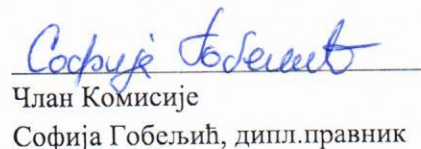 Софија Гобељић
Члан Комисије
Софија Гобељић, дипл.правник